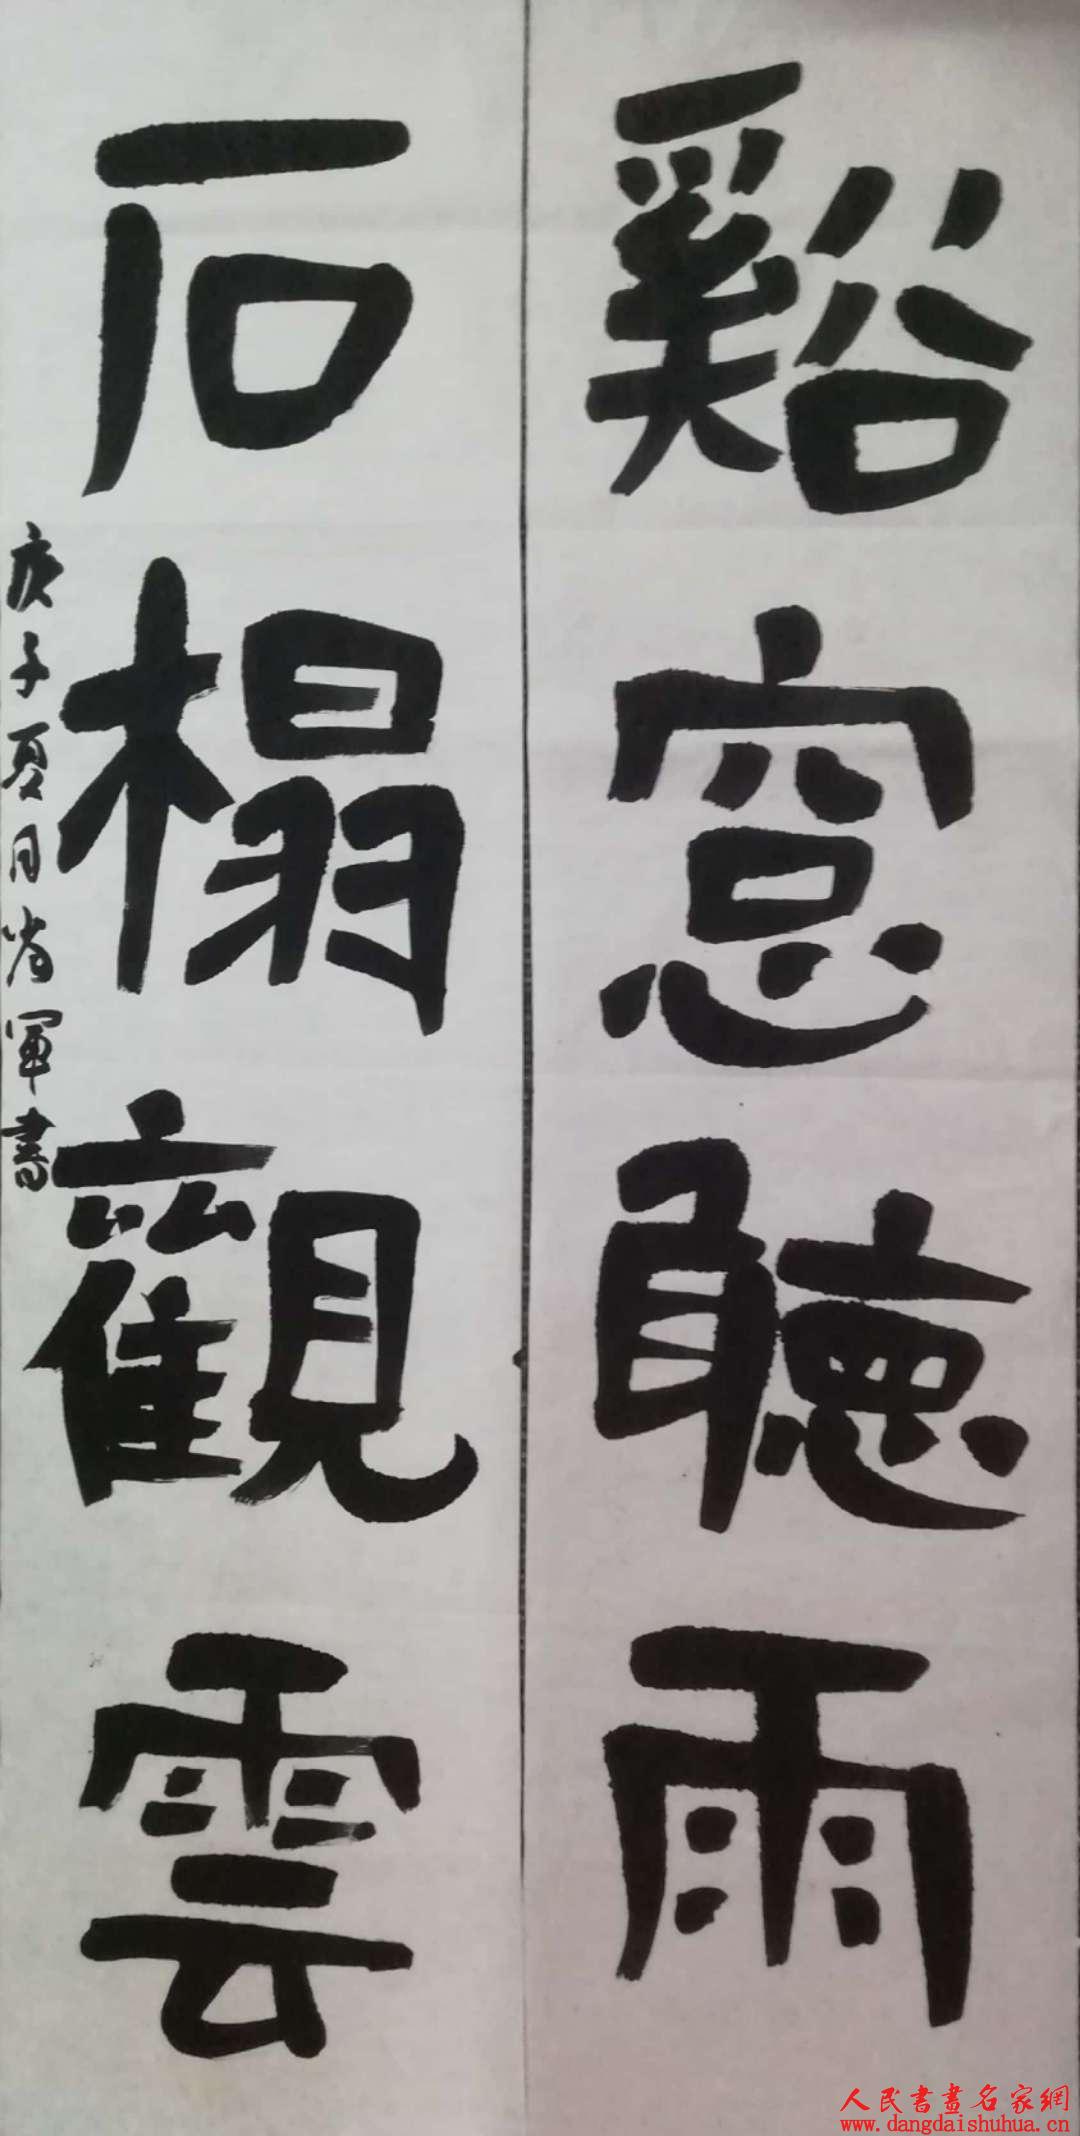 谿窓聽雨
石榻觀雲
庚子夏月省軍書
人民書畫名家網
www.dangdaishuhua.cn